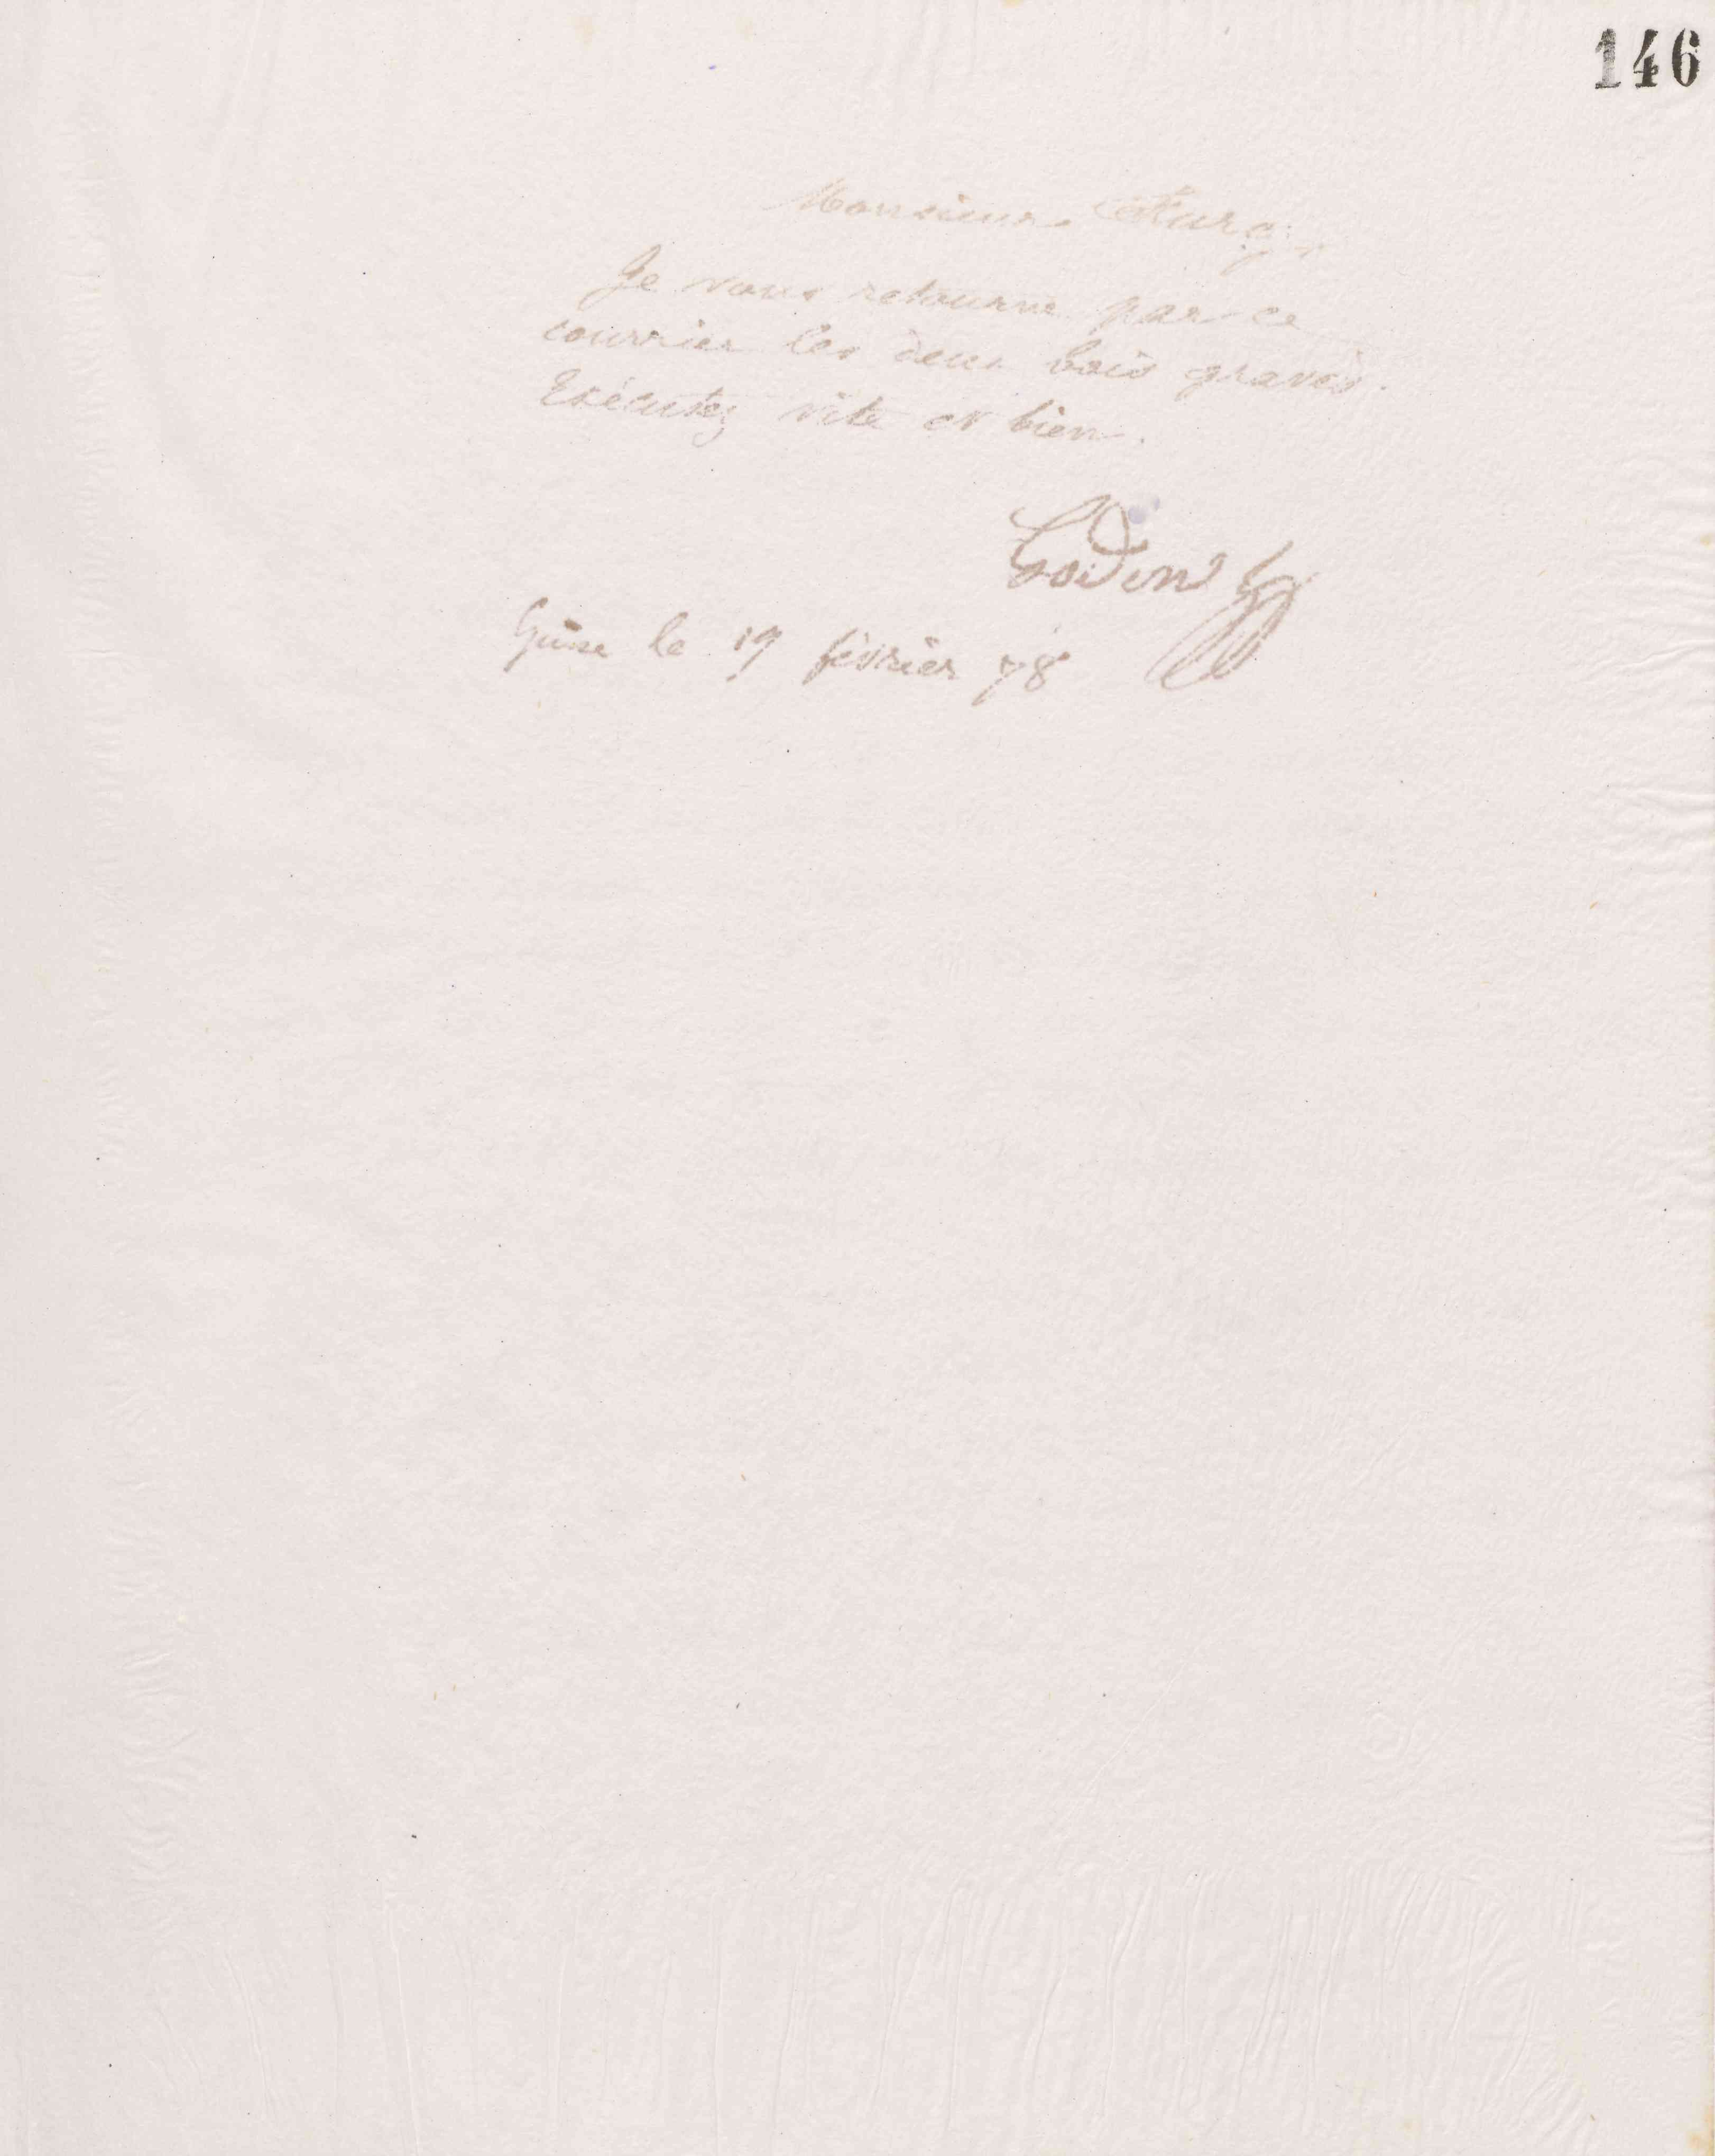 146
Monsieur
Je vous retourne par ce
courrier les deux bois gravés.
Exécutez vite et bien.
Godin
Guise le 19 février 78